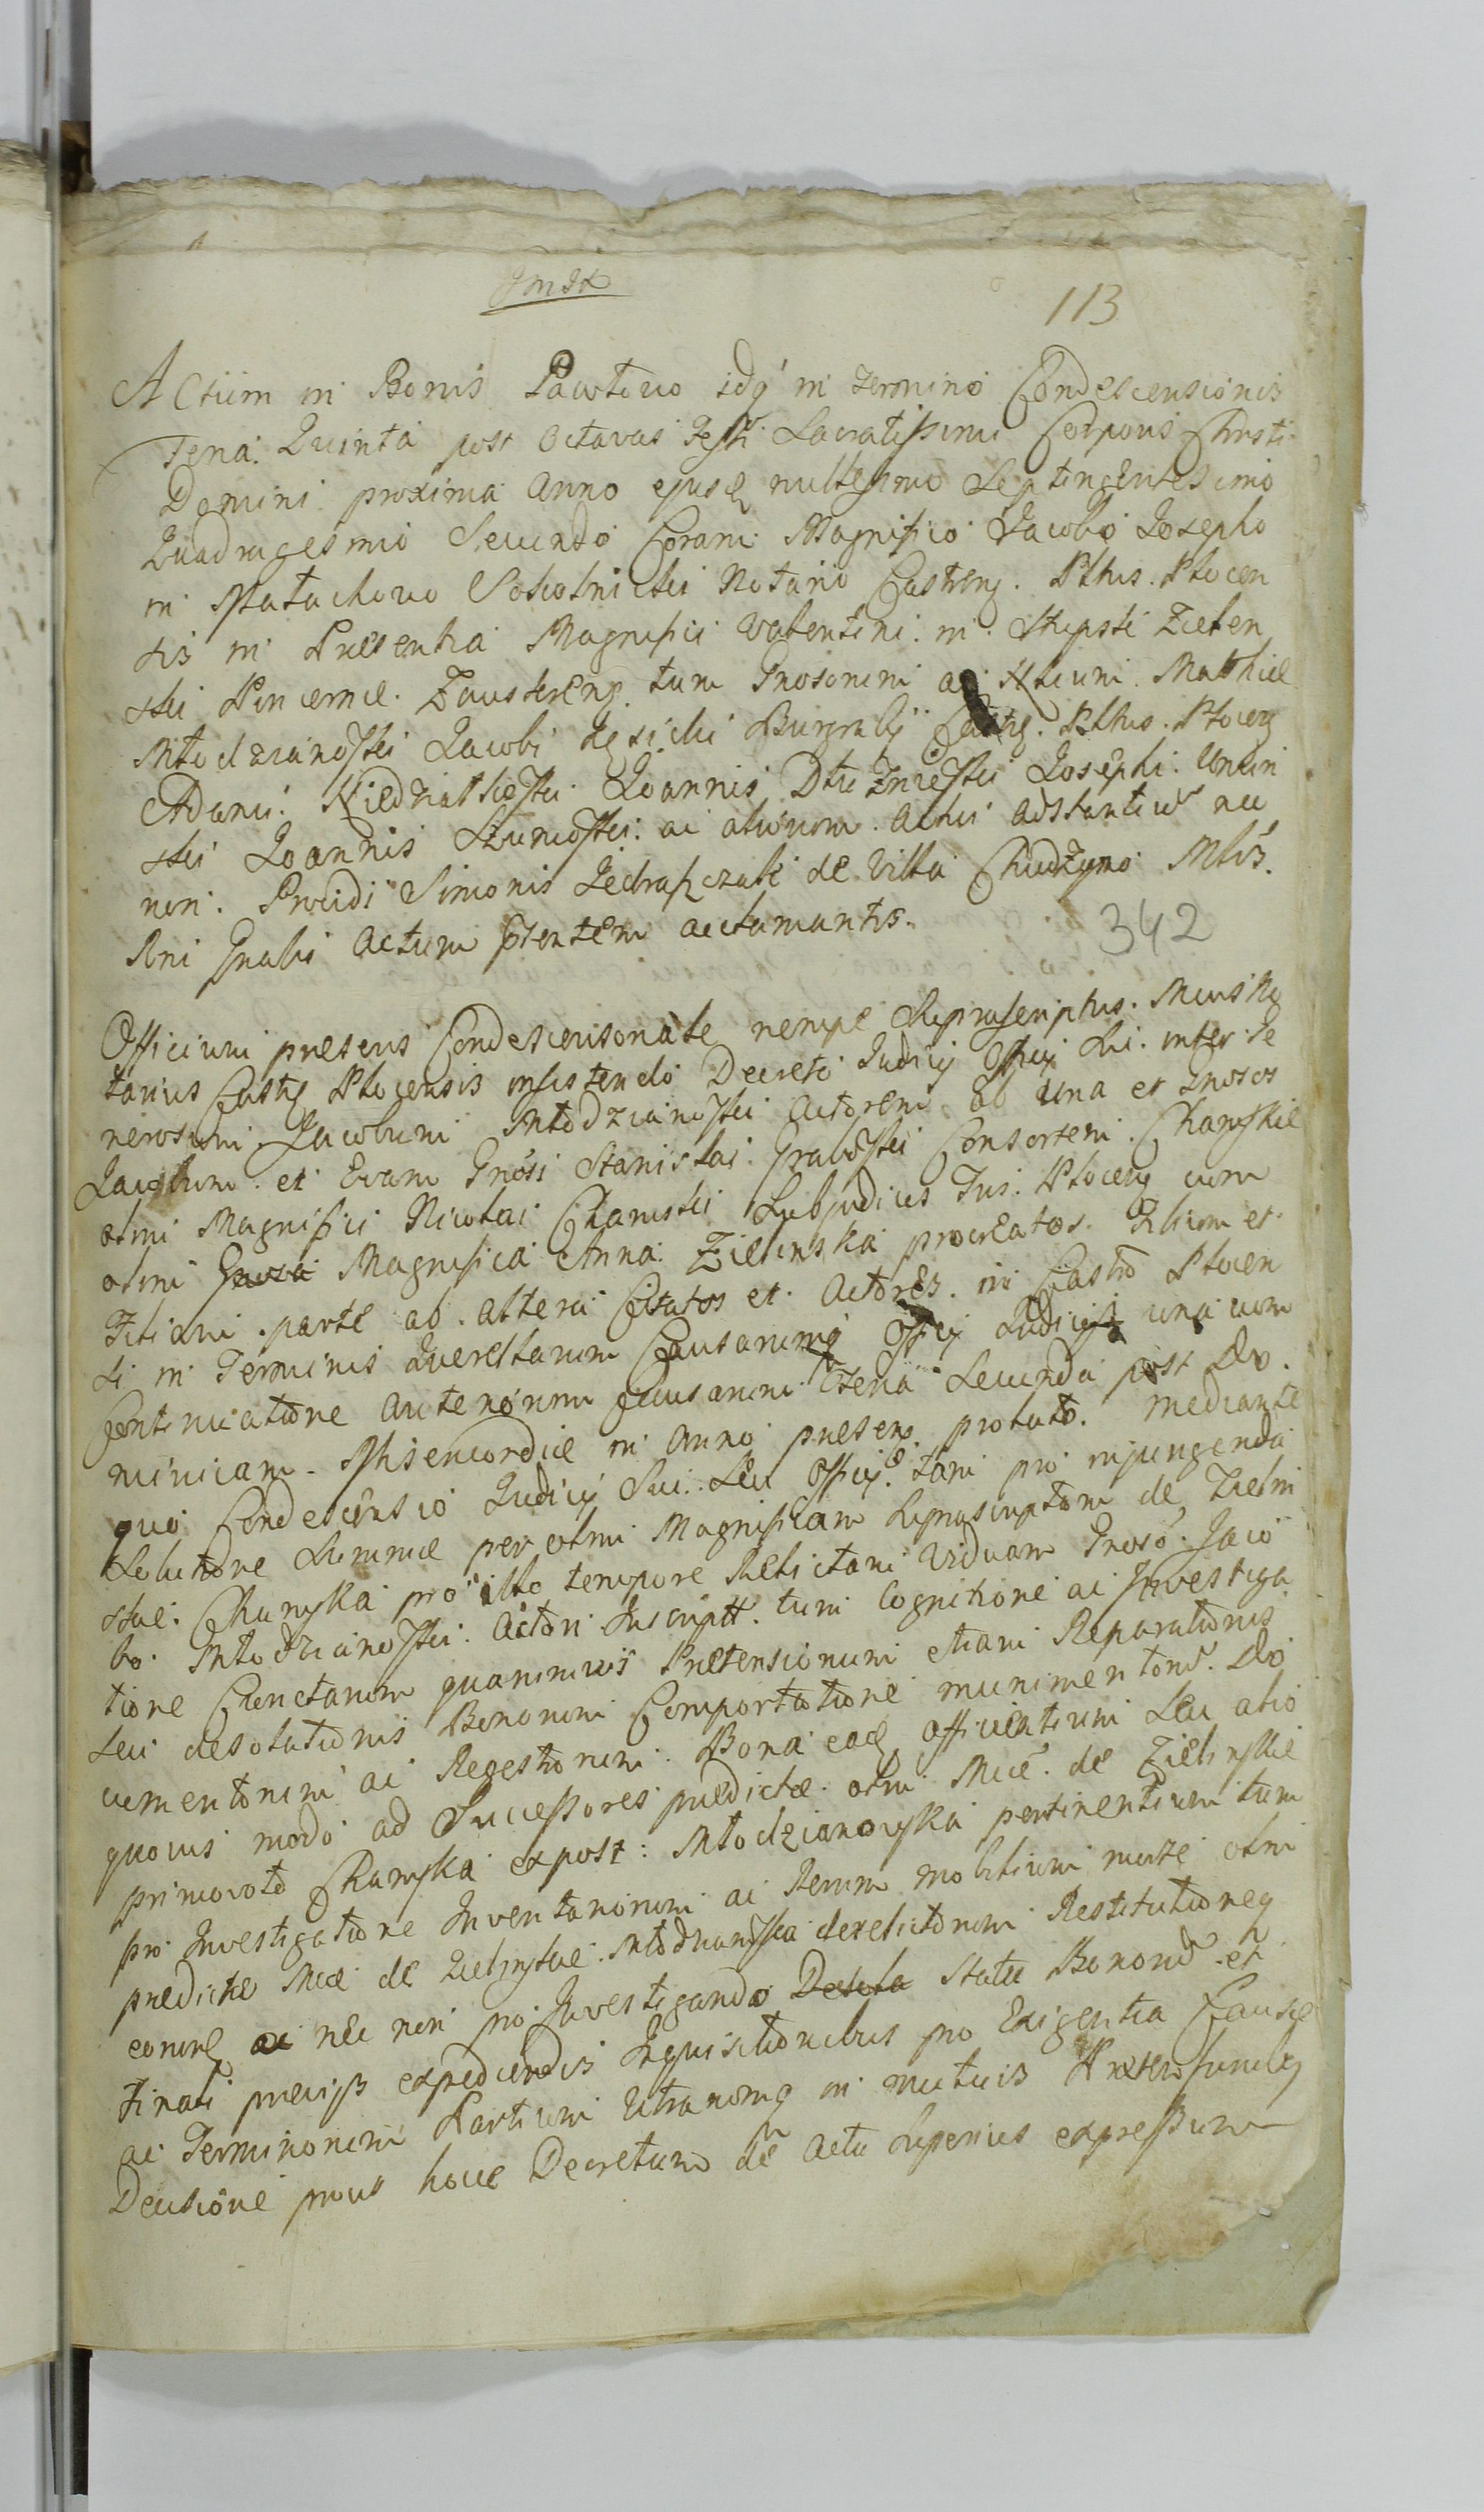 113
Actum in Bonis Pawłowo idq in Termino Condescensionis
Feria Quinta post Octavas Festi Sacratissimi Corporis Christi
Domini proxima Anno ejusd millesimo Septingentesimo
Quadragesimo Secundo Coram Magnifico Jacobo Josepho
in Małachowo Sokolnicki Notario Castren. Pltus. Plocen
sis in Presentia Magnifici Valentini in Skępsk Zielen
ski Pincernæ Zauskren. tum Gnosorum ac Nlium Mathiæ
Młodzianoski Jacobi Burgrabÿ Castr. Pltus. Plocen
Adami Niedziałkoski Joannis Josephi
ski Joannis ac aliorum Actui adstantium nec
non. Providi Simonis Jędrzejczak de Villa Chudzyno Mltris
Rni Gnalis Actum pntem acclamantis.
342
Officium presens Condescensonale nempe Suprascriptus. Mcus No
tarius Castr Plocensis insistendo Decreto Judicÿ Officÿ Sui. inter Ge
nerosum Jacobum Młodzianoski Actorem ab una et Gnosos
Jacobum et Evam Gnosi Stanislai Graboski Consortem. Chamskie
olmi Magnifici Nicolai Chamski Subjudicis Tris. Plocen cum
olmi Magnifica Anna Zielinska procreatos Filium et
Filiam parte ab altera Citatos et Actores in Castro Plocen
si in Terminis Querellarum Causarumq Officÿ Judicÿ una cum
Continuatione Anteriorum Causarum Feria Secunda post Do
minicam Misericordiæ in Anno presen. prolato. mediante
quo Condescensio Judicÿ Sui. Seu Officÿ tam pro injungenda
Solutione Summæ per olmi Magnificam Suprascriptam de Zielin
skie Chamska pro illo tempore Relictam Viduam Gnoso Jaco
bo Młodzianoski Actori Inscriptt. tum Cognitione ac Investiga
tione Cunctarum quarumvis Pretensionum etiam Reparationis
seu desolationis Bonorum Comportatione munimentorum Do
cumentorum ac Regestrorum Bona ead officientium Seu alio
quovis modo ad Successores prædictæ olmi Mcæ de Zielinskie
primovoto Chamska expost: Młodzianowska pertinentium tum
pro Investigatione Inventariorum ac Rerum mobilium olmi
predictæ Mcæ de Zielinskie Młodzianoska derelictorum Restitutioneq
eorund ac nec non pro Investigando Statu Bonorum et
expediendis Inquisitionibus pro Exigentia Causæ
ac Terminorum Partium Utrarumq in mutuis
Decisione prout hocce Decretum de Actu Superius expressum